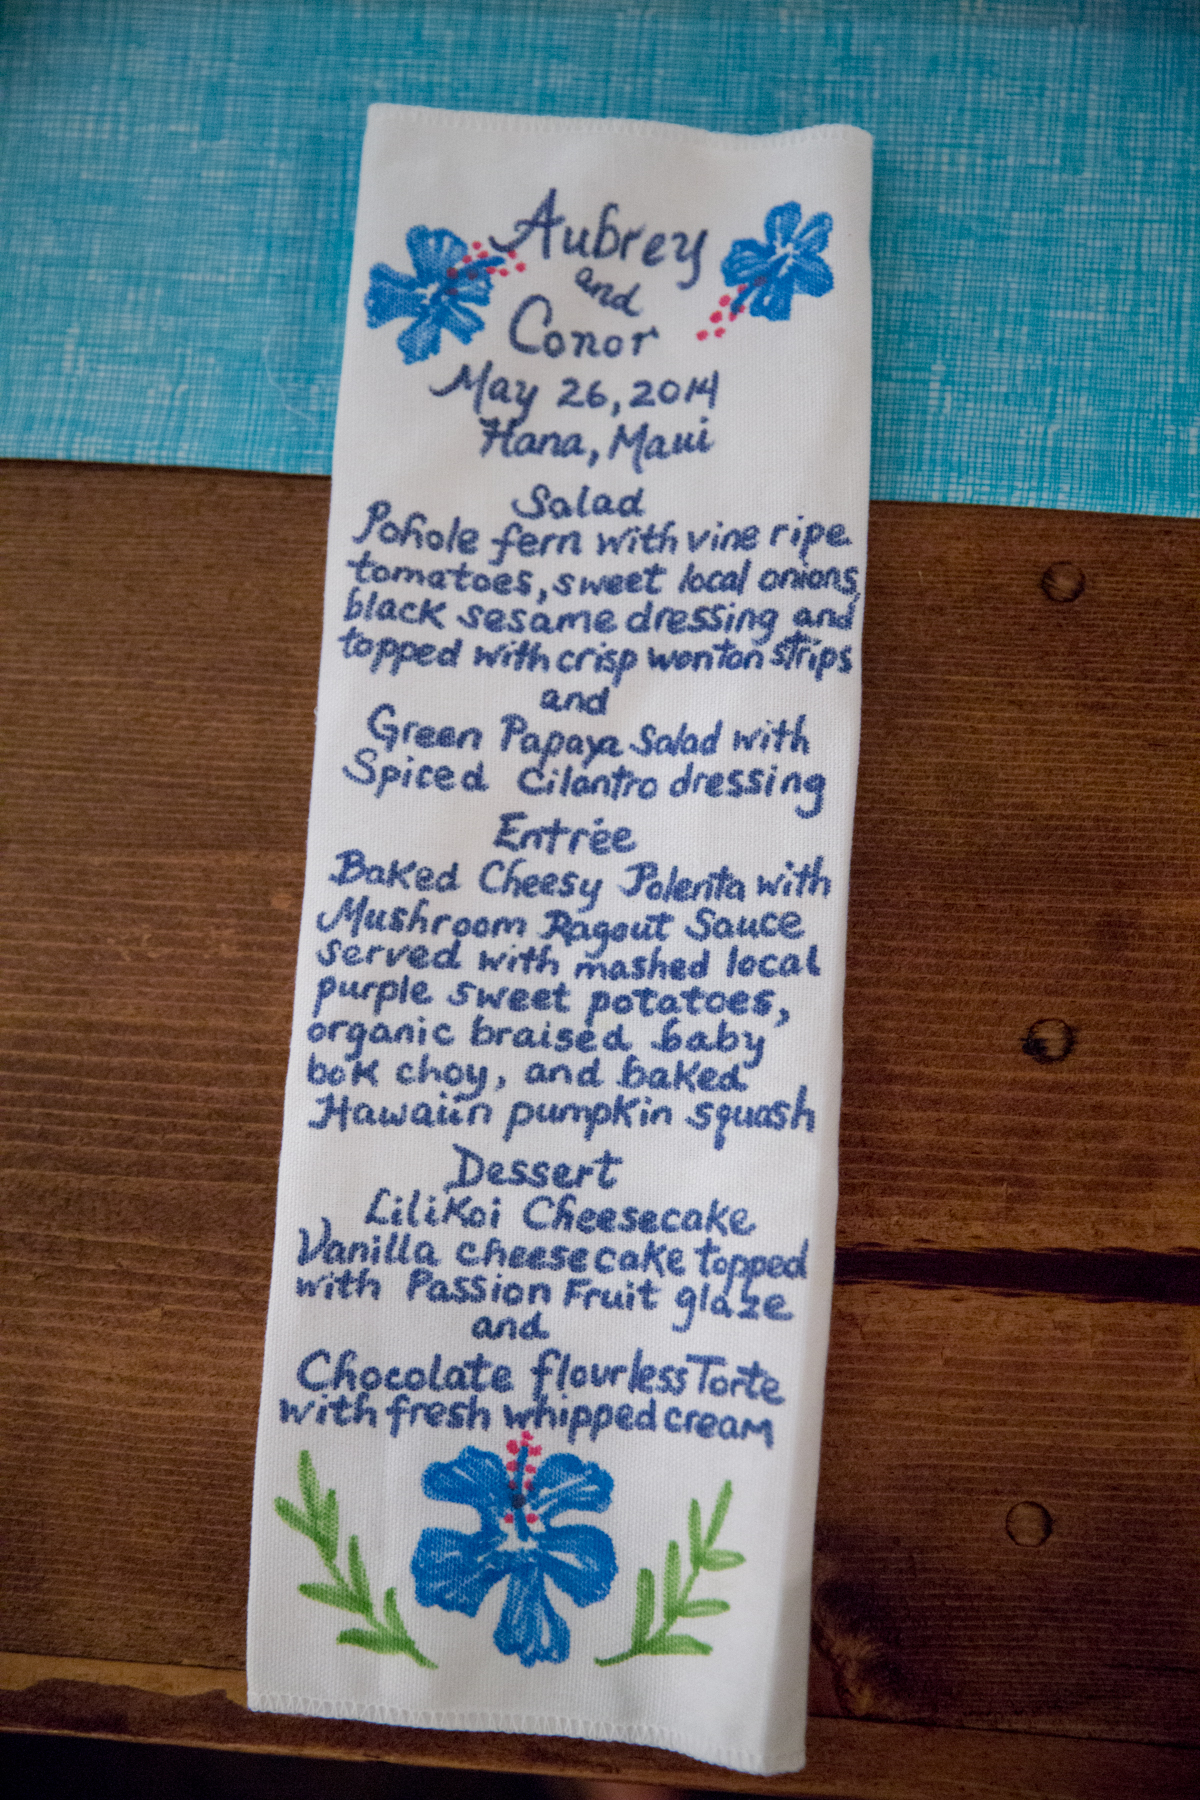 Aubrey
and
Conor
May 26, 2014
Hana, Maui
Salad
Pohole fern with vine ripe
tomatoes, sweet local onions,
black sesame dressing and
topped with crisp wonton strips
and
Green Papaya Salad with
Spiced Cilantro dressing
Entrée
Baked Cheesy Polenta with
Mushroom Ragout Sauce
served with mashed local
purple sweet potatoes,
organic braised baby
bok choy, and baked
Hawaiin pumpkin squash
Dessert
Lilikoi Cheesecake
Vanilla cheesecake topped
with Passion Fruit glaze
and
Chocolate flourless Torte
with fresh whipped cream